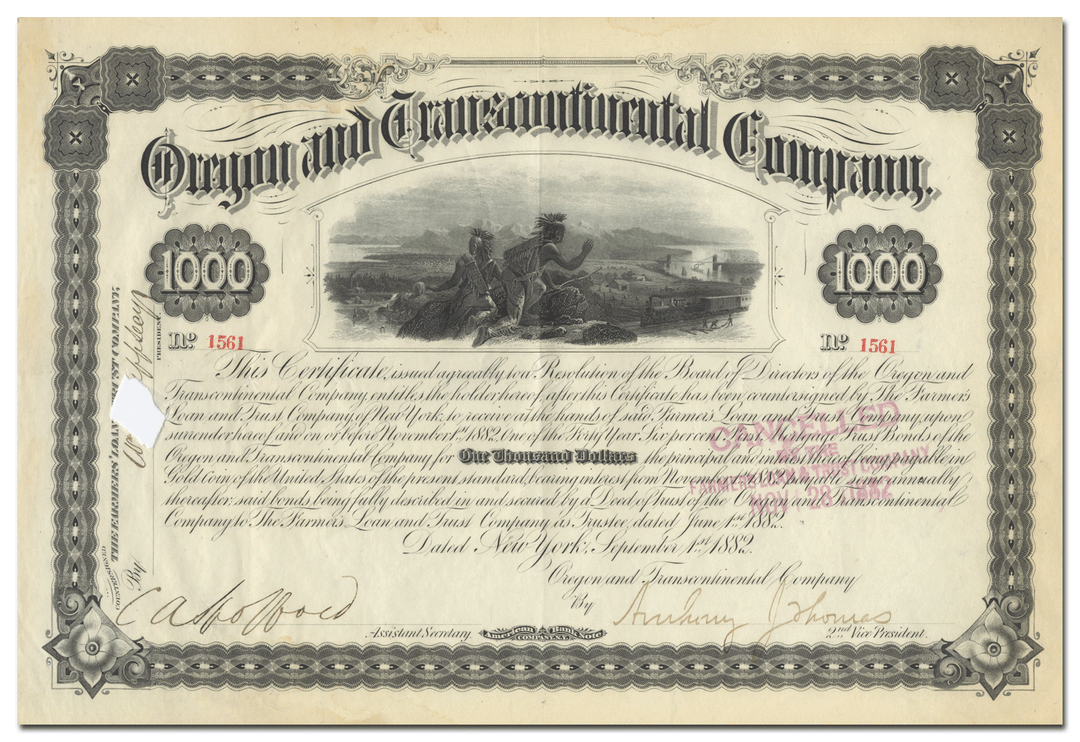 Oregon and Transcontinental Company.
1000
1000
No 1561
No 1561
This Certificate, issued agreeably to a Resolution of the Board of Directors of the Oregon and
Transcontinental Company entitles the holder hereof, after this Certificate has been countersigned by The Farmers'
Loan and Trust Company of New York, to receive at the hands of said Farmers' Loan and Trust Company, upon
surrender hereof, and on or before November 1st 1882, One of the Forty Year Six per cent. First Mortgage Trust Bonds of the
Oregon and Transcontinental Company for One Thousand Dollars the principal and interest being payable in
Gold Coin of the United States of the present standard, bearing interest from payable semi annually
thereafter: said bonds being fully described in and secured by a Deed of Trust of the Oregon and Transcontinental
Company to The Farmers' Loan and Trust Company as Trustee, dated June 1st 1882.
Dated New York, September 1st 1882.
Oregon and Transcontinental Company
By Anthony J Thomas
Assistant Secretary.
American Bank Note
COMPANY, N.Y.
2nd Vice President.
CANCELLED
BY THE
FARMERS LOAN & TRUST COMPANY
NOV 28 1882
COUNTERSIGNED
THE FARMERS' LOAN TRUST COMPANY,
By
PRESIDENT